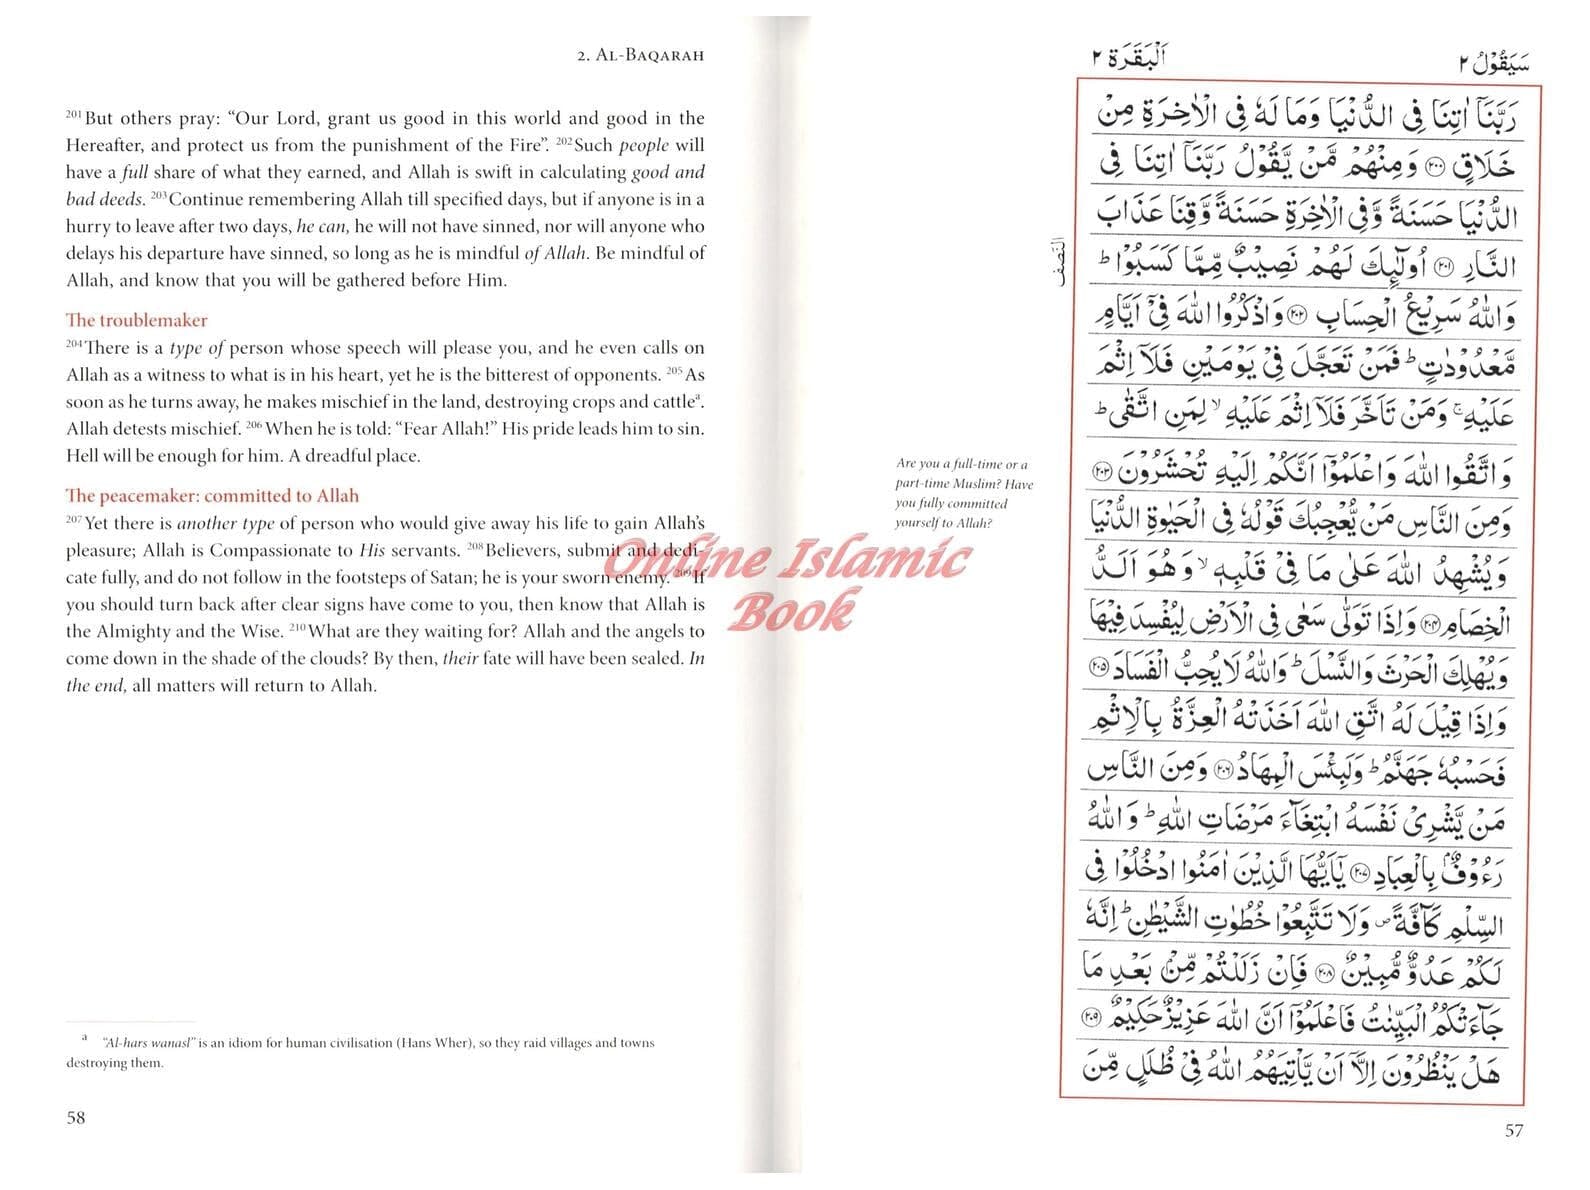 2. Al-Baqarah
201 But others pray: “Our Lord, grant us good in this world and good in the
Hereafter, and protect us from the punishment of the Fire”. 202 Such people will
have a full share of what they earned, and Allah is swift in calculating good and
bad deeds. 203 Continue remembering Allah till specified days, but if anyone is in a
hurry to leave after two days, he can, he will not have sinned, nor will anyone who
delays his departure have sinned, so long as he is mindful of Allah. Be mindful of
Allah, and know that you will be gathered before Him.
The troublemaker
204 There is a type of person whose speech will please you, and he even calls on
Allah as a witness to what is in his heart, yet he is the bitterest of opponents. 205 As
soon as he turns away, he makes mischief in the land, destroying crops and cattle a.
Allah detests mischief. 206 When he is told: “Fear Allah!” His pride leads him to sin.
Hell will be enough for him. A dreadful place.
The peacemaker: committed to Allah
207 Yet there is another type of person who would give away his life to gain Allah’s
pleasure; Allah is Compassionate to His servants. 208 Believers, submit and dedi-
cate fully, and do not follow in the footsteps of Satan; he is your sworn enemy. 209 If
you should turn back after clear signs have come to you, then know that Allah is
the Almighty and the Wise. 210 What are they waiting for? Allah and the angels to
come down in the shade of the clouds? By then, their fate will have been sealed. In
the end, all matters will return to Allah.
a “Al-hars wanasl” is an idiom for human civilisation (Hans Wher), so they raid villages and towns
destroying them.
58
Online Islamic
Book
سَيَقُوْلُ ٢
اَلْبَقَرَة ٢
رَبَّنَآ اٰتِنَا فِى الدُّنْيَا وَمَا لَهٗ فِى الْاٰخِرَةِ مِنْ
خَلَاقٍ ٢٠٠ وَمِنْهُمْ مَّنْ يَّقُوْلُ رَبَّنَآ اٰتِنَا فِى
الدُّنْيَا حَسَنَةً وَّفِى الْاٰخِرَةِ حَسَنَةً وَّقِنَا عَذَابَ
النَّارِ ٢٠١ اُولٰٓئِكَ لَهُمْ نَصِيْبٌ مِّمَّا كَسَبُوْا ؕ
وَاللّٰهُ سَرِيْعُ الْحِسَابِ ٢٠٢ وَاذْكُرُوا اللّٰهَ فِىْٓ اَيَّامٍ
مَّعْدُوْدٰتٍ ؕ فَمَنْ تَعَجَّلَ فِىْ يَوْمَيْنِ فَلَآ اِثْمَ
عَلَيْهِ ۚ وَمَنْ تَاَخَّرَ فَلَآ اِثْمَ عَلَيْهِ ۙ لِمَنِ اتَّقٰى ؕ
وَاتَّقُوا اللّٰهَ وَاعْلَمُوْٓا اَنَّكُمْ اِلَيْهِ تُحْشَرُوْنَ ٢٠٣
وَمِنَ النَّاسِ مَنْ يُّعْجِبُكَ قَوْلُهٗ فِى الْحَيٰوةِ الدُّنْيَا
وَيُشْهِدُ اللّٰهَ عَلٰى مَا فِىْ قَلْبِهٖ ۙ وَهُوَ اَلَدُّ
الْخِصَامِ ٢٠٤ وَاِذَا تَوَلّٰى سَعٰى فِى الْاَرْضِ لِيُفْسِدَ فِيْهَا
وَيُهْلِكَ الْحَرْثَ وَالنَّسْلَ ؕ وَاللّٰهُ لَا يُحِبُّ الْفَسَادَ ٢٠٥
وَاِذَا قِيْلَ لَهُ اتَّقِ اللّٰهَ اَخَذَتْهُ الْعِزَّةُ بِالْاِثْمِ
فَحَسْبُهٗ جَهَنَّمُ ؕ وَلَبِئْسَ الْمِهَادُ ٢٠٦ وَمِنَ النَّاسِ
مَنْ يَّشْرِىْ نَفْسَهُ ابْتِغَآءَ مَرْضَاتِ اللّٰهِ ؕ وَاللّٰهُ
رَءُوْفٌۢ بِالْعِبَادِ ٢٠٧ يٰٓاَيُّهَا الَّذِيْنَ اٰمَنُوا ادْخُلُوْا فِى
السِّلْمِ كَآفَّةً ص وَلَا تَتَّبِعُوْا خُطُوٰتِ الشَّيْطٰنِ ؕ اِنَّهٗ
لَكُمْ عَدُوٌّ مُّبِيْنٌ ٢٠٨ فَاِنْ زَلَلْتُمْ مِّنْۢ بَعْدِ مَا
جَآءَتْكُمُ الْبَيِّنٰتُ فَاعْلَمُوْٓا اَنَّ اللّٰهَ عَزِيْزٌ حَكِيْمٌ ٢٠٩
هَلْ يَنْظُرُوْنَ اِلَّآ اَنْ يَّاْتِيَهُمُ اللّٰهُ فِىْ ظُلَلٍ مِّنَ
النّصف
Are you a full-time or a
part-time Muslim? Have
you fully committed
yourself to Allah?
57